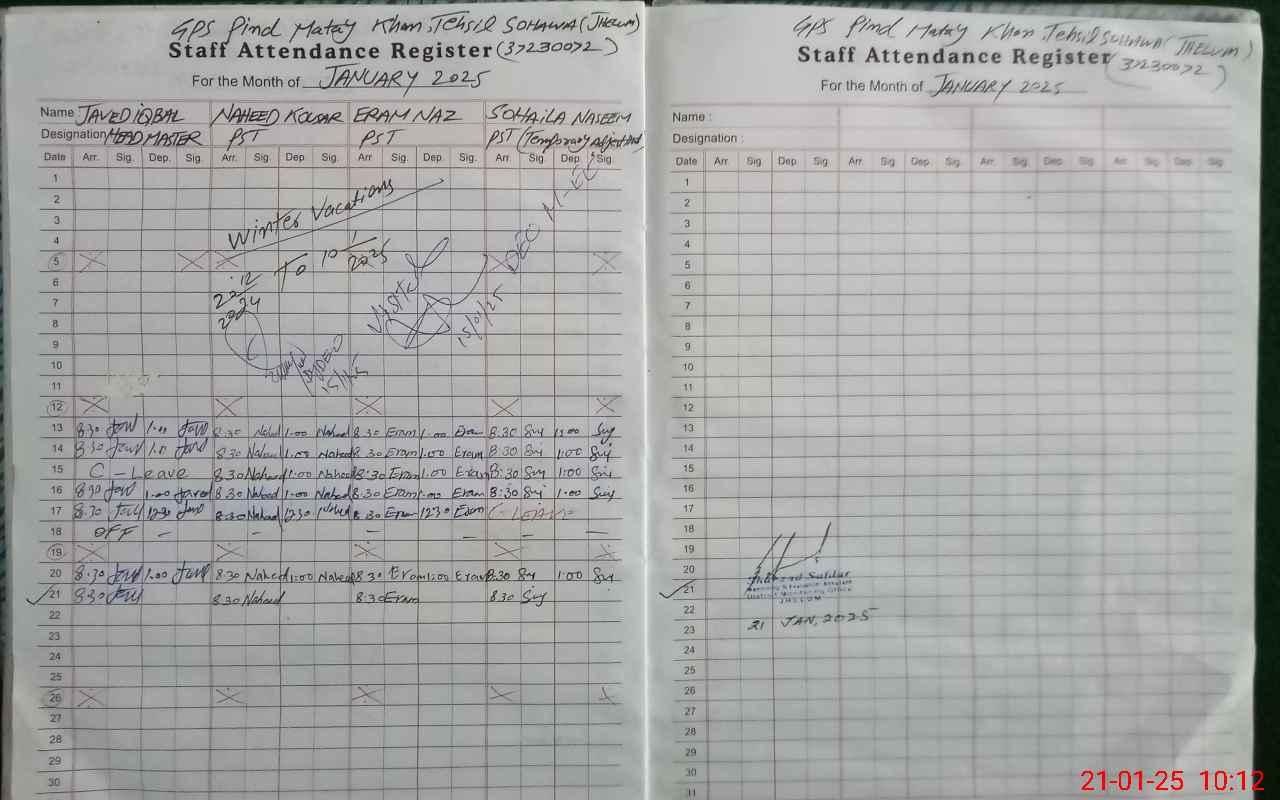 GPS Pind Matay Khan, Tehsil SOHAWA (JHELUM)
Staff Attendance Register (37230072)
For the Month of JANUARY 2025
Name JAVED IQBAL NAHEED KOUSAR ERAM NAZ SOHAILA NASEEM
Designation HEAD MASTER PST PST PST (Temporary
Date Arr. Sig. Dep. Sig. Arr. Sig. Dep. Sig. Arr. Sig. Dep. Sig. Arr. Sig. Dep. Sig.
1
2
3
4
5
6
7
8
9
10
11
12
Winter Vacations
22/12/2024 To 10/1/2025
Visited
15/01/25 DEO M-EE
DyDEO
13 8:30 1.00 8:30 1:00 Naheed 8:30 Eram 1:00 Eram 8:30 1:00
14 8:30 8:30 Naheed 1:00 Naheed 8:30 Eram 1:00 Eram 8:30 1:00
15 C-Leave 8:30 Naheed 1:00 Naheed 8:30 Eram 1.00 Eram 8:30 1:00
16 8:30 1.00 Javed 8:30 Naheed 1:00 Naheed 8:30 Eram 1:00 Eram 8:30 1:00
17 8:30 1230 8:30 Naheed 1230 Naheed 8:30 Eram 1230 Eram C-LEAVE
18 OFF — — — — — —
19
20 8:30 1.00 8:30 Naheed 1:00 Naheed 8:30 Eram 1:00 Eram 8:30 1:00
21 8:30 8:30 Naheed 8:30 Eram 8:30
22
23
24
25
26
27
28
29
30
GPS Pind Matay Khan, Tehsil SOHAWA (JHELUM)
Staff Attendance Register (37230072)
For the Month of JANUARY 2025
Name :
Designation :
Date Arr. Sig. Dep. Sig. Arr. Sig. Dep. Sig. Arr. Sig. Dep. Sig. Arr. Sig. Dep. Sig.
1
2
3
4
5
6
7
8
9
10
11
12
13
14
15
16
17
18
19
20
21
22
23
24
25
26
27
28
29
30
31
Safdar
District Monitoring Office
JHELUM
21 JAN, 2025
21-01-25 10:12